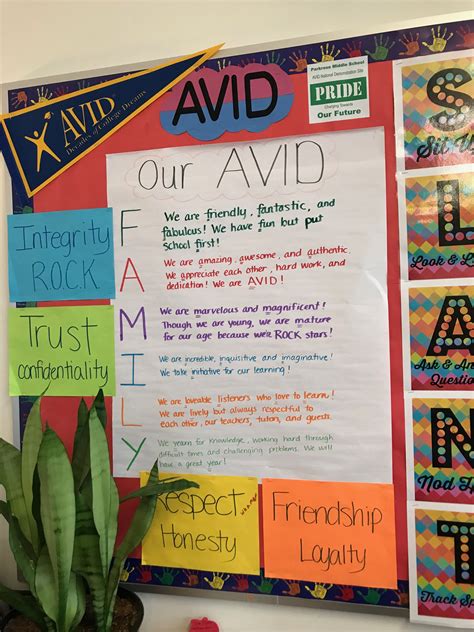 AVID
Decades of College Dreams
AVID
Parkrose Middle School
AVID National Demonstration Site
PRIDE
Charging Towards
Our Future
Our AVID
F
We are friendly, fantastic, and
fabulous! We have fun but put
school first!
A
We are amazing, awesome, and authentic
We appreciate each other, hard work, and
dedication! We are AVID!
M
We are marvelous and magnificent!
Though we are young, we are mature
for our age because we're ROCK stars!
I
We are incredible, inquisitive and imaginative!
We take initiative for our learning!
L
We are loveable listeners who love to learn!
We are lively but always respectful to
each other, our teachers, tutors, and guests.
Y
We yearn for knowledge, working hard through
difficult times and challenging problems. We will
have a great year!
Integrity
R.O.C.K
Trust
confidentiality
Respect
Honesty
Friendship
Loyalty
S
Sit U
L
Look & L
A
Ask & An
Question
N
Nod
T
Track Sp